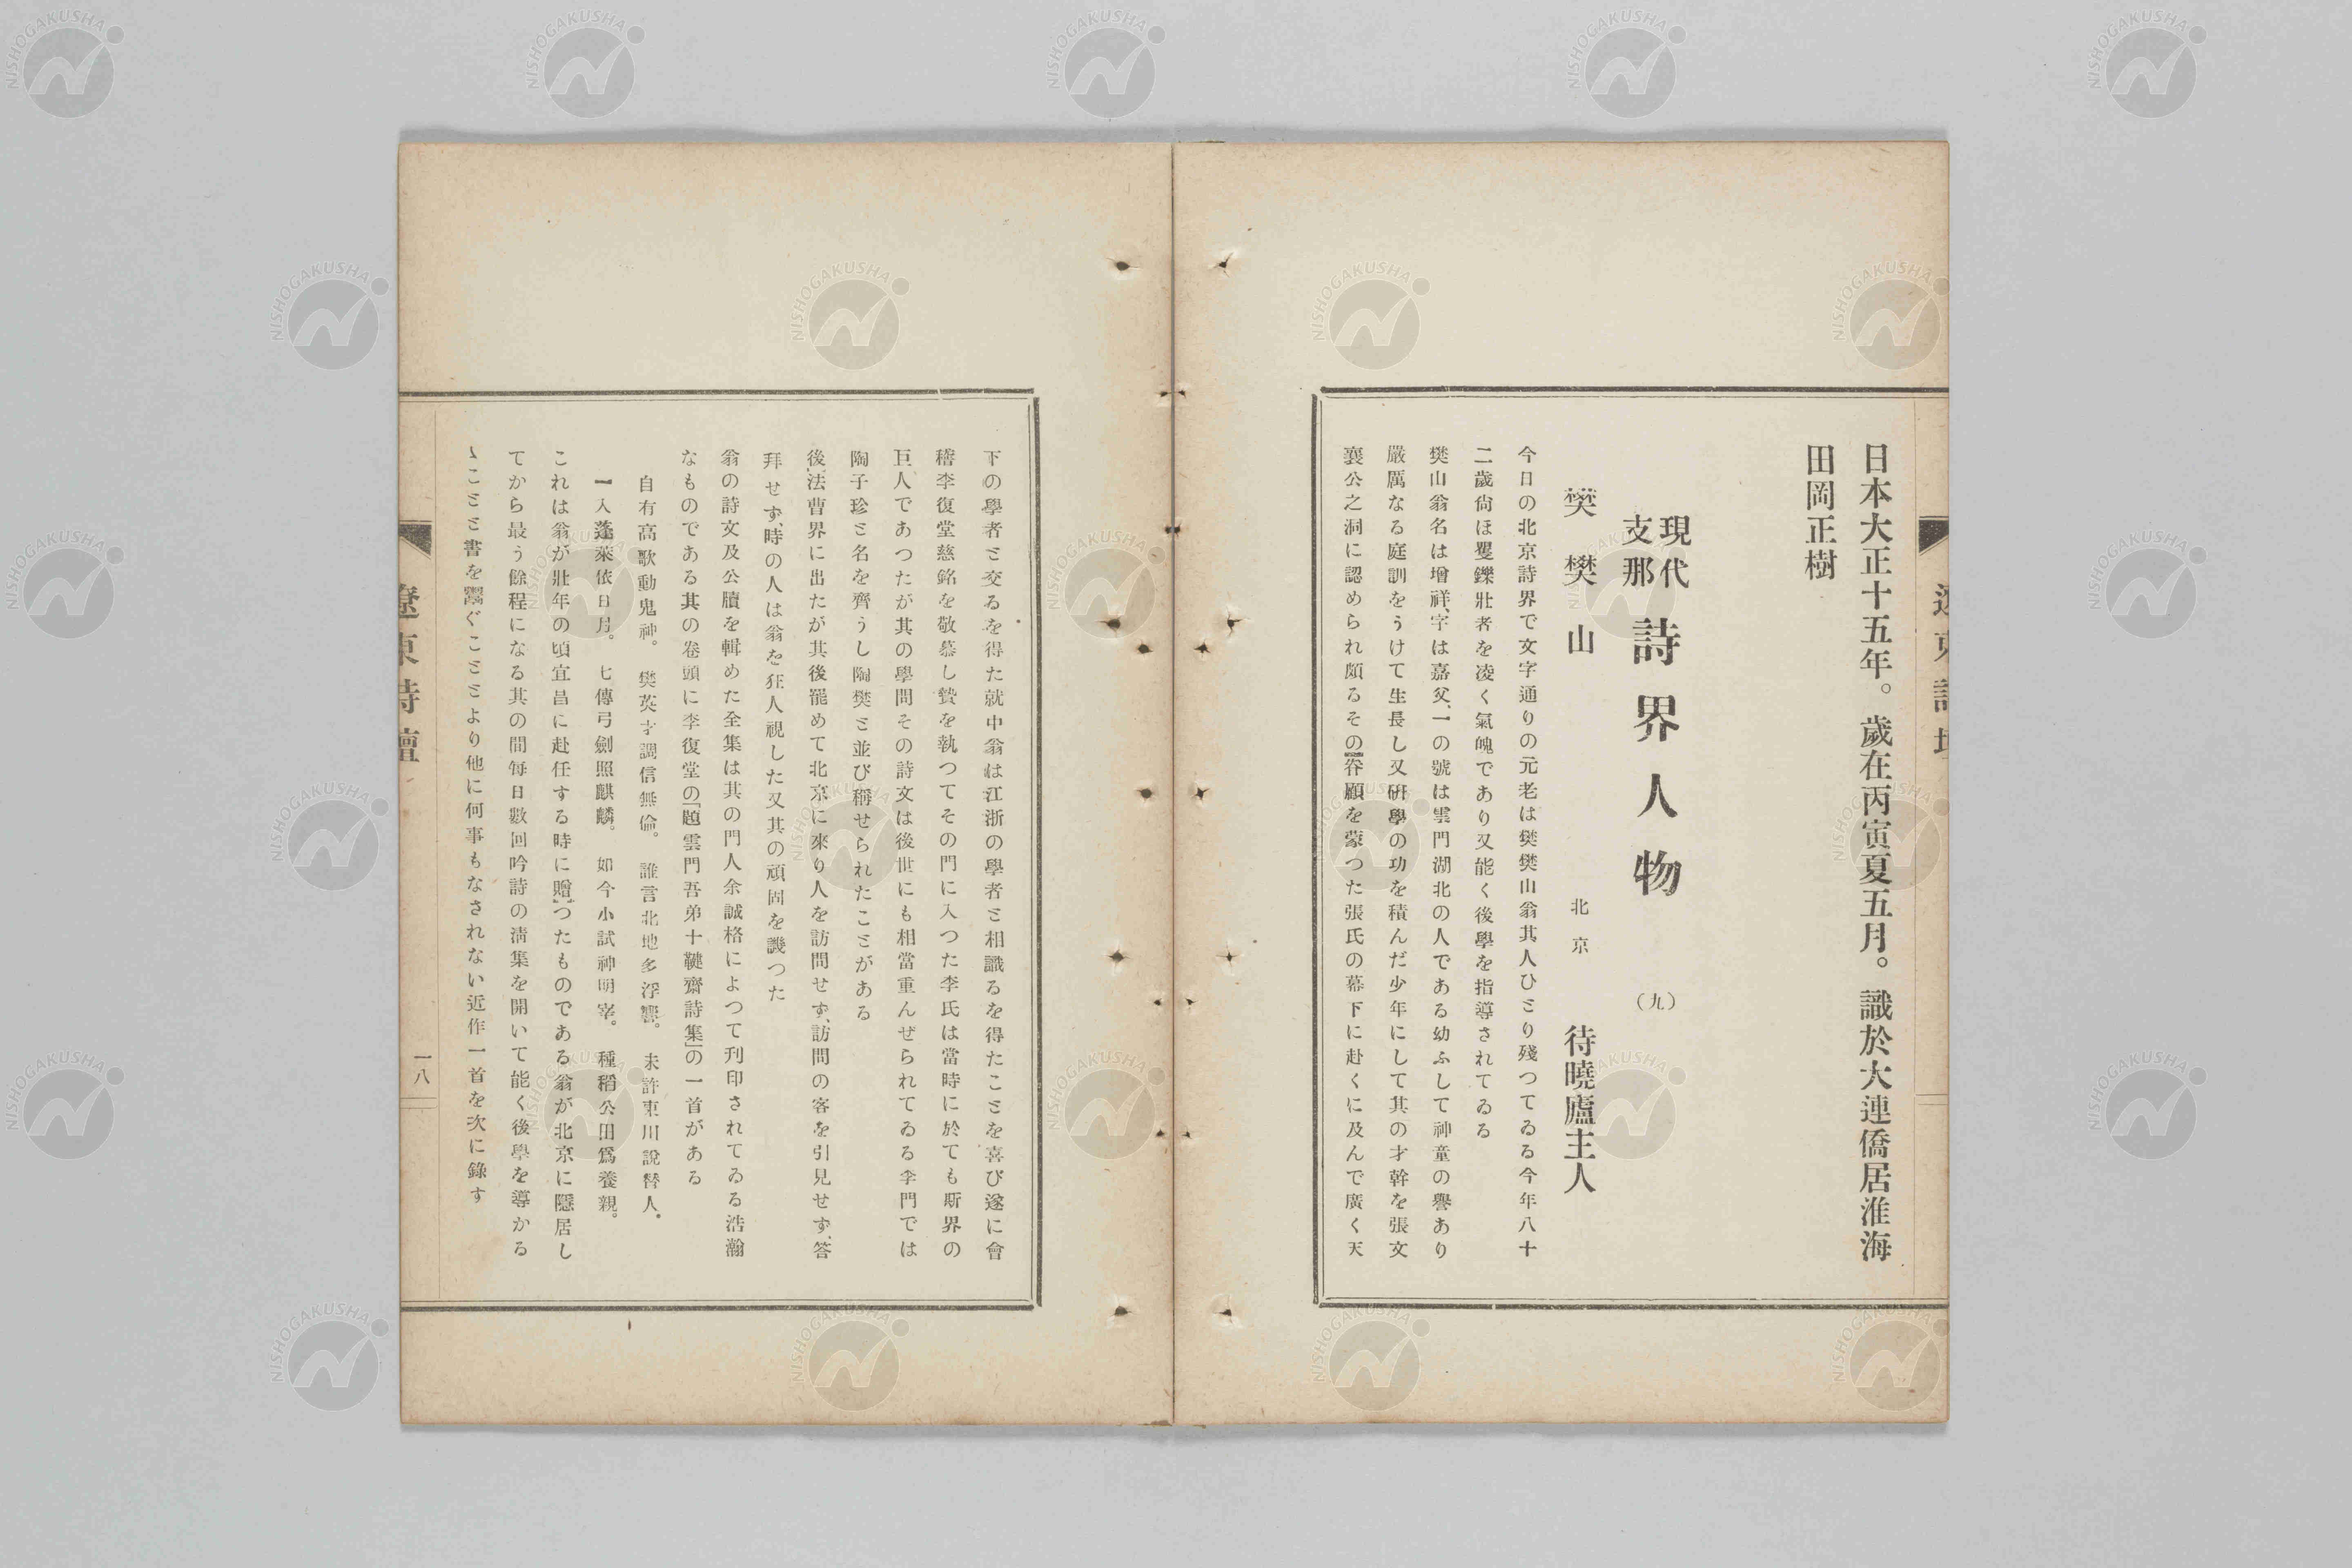 日本大正十五年。歲在丙寅夏五月。識於大連僑居淮海
田岡正樹
現代
支那
詩界人物
(九)
樊樊山
北京
待曉廬主人
今日の北京詩界で文字通りの元老は樊樊山翁其人ひとり殘つてゐる今年八十
二歲尙ほ矍鑠壯者を凌く氣魄であり又能く後學を指導されてゐる
樊山翁名は增祥、字は嘉父、一の號は雲門湖北の人である幼ふして神童の譽あり
嚴厲なる庭訓をうけて生長し又硏學の功を積んだ少年にして其の才幹を張文
襄公之洞に認められ頗るその眷顧を蒙つた張氏の幕下に赴くに及んで廣く天
下の學者と交るを得た就中翁は江浙の學者と相識るを得たことを喜び遂に會
稽李復堂慈銘を敬慕し贄を執つてその門に入つた李氏は當時に於ても斯界の
巨人であつたが其の學問その詩文は後世にも相當重んぜられてゐる李門では
陶子珍と名を齊うし陶樊と並び稱せられたことがある
後法曹界に出たが其後罷めて北京に來り人を訪問せず、訪問の客を引見せず、答
拜せず、時の人は翁を狂人視した又其の頑固を譏つた
翁の詩文及公牘を輯めた全集は其の門人余誠格によつて刋印されてゐる浩瀚
なものである其の卷頭に李復堂の「題雲門吾弟十鞬齋詩集」の一首がある
自有高歌動鬼神。樊英才調信無倫。誰言北地多浮響。未許東川說替人。
一入蓬萊依日月。七傳弓劍照麒麟。如今小試神明宰。種稻公田爲養親。
これは翁が壯年の頃宜昌に赴任する時に贈つたものである翁が北京に隱居し
てから最う餘程になる其の間每日數回吟詩の淸集を開いて能く後學を導かる
ゝことと書を鬻ぐこととより他に何事もなされない近作一首を次に錄す
遼東詩壇
一八
NISHOGAKUSHA